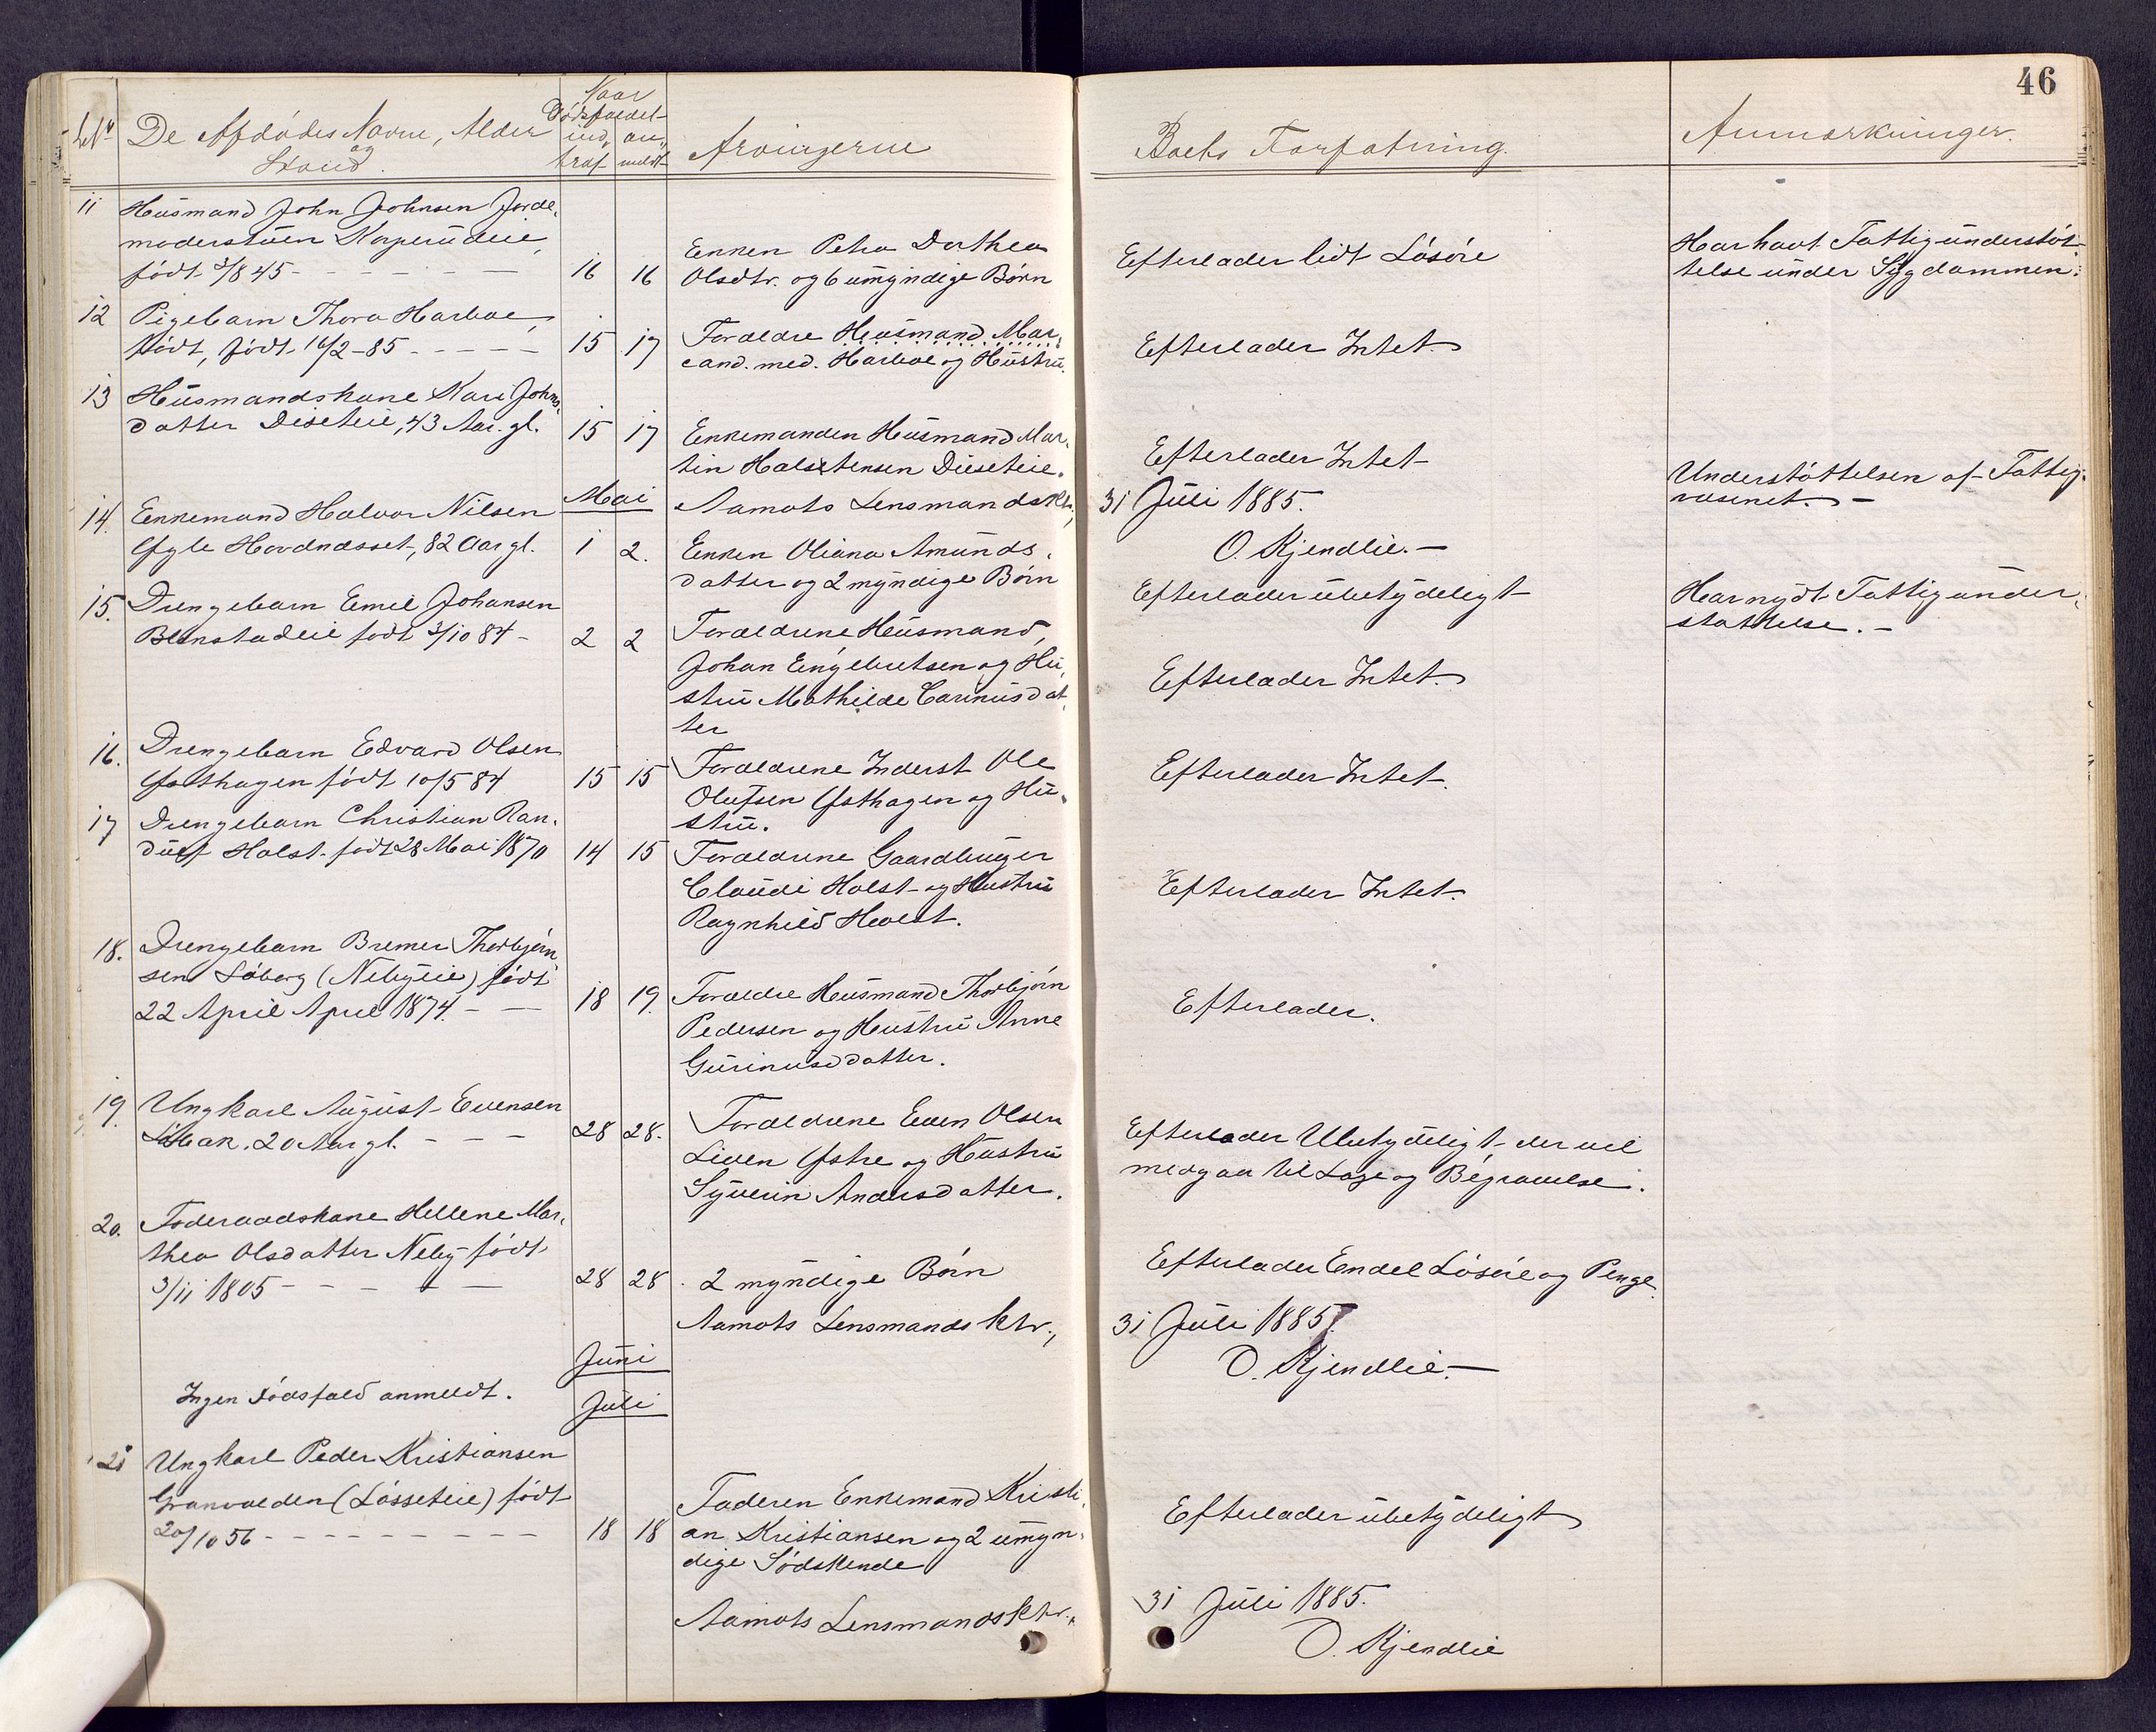 46
De Afdødes Navne, Alder
og
Stand.
Naar
Dødsfaldet
ind- an-
traf meldt
Arvingerne
Boets Forfatning.
Anmærkninger.
11 Husmand John Johnsen Jorde-
moderstuen
født 3/8 45 - 16 16
Enken Petra Dorthea
Olsdtr. og 6 umyndige Børn
Efterlader lidt Løsøre
Har havt Fattigunderstøt-
telse under Sygdommen.
12 Pigebarn Thora Harboe,
født, født 16/2-85 - 15 17
Forældre Husmand Mar-
cand. med. Harboe og Hustru.
Efterlader Intet
13 Husmandskone Kari Johns-
datter Diseteie, 43 Aar gl. 15 17
Enkemanden Husmand Mar-
tin Halstensen Diseteie.
Efterlader Intet
Mai
Aamots Lensmandsktr.,
31 Juli 1885.
O. Kjendlie. -
Understøttelsen af Fattig-
væsenet. -
14. Enkemand Halvor Nilsen
Hovdnæsset, 82 Aar gl. 1 2.
Enken Oliana Amunds-
datter og 2 myndige Børn
Efterlader ubetydeligt
Har nydt Fattigunder-
støttelse. -
15. Drengebarn Emil Johansen
født 3/10 84 - 2 2
Forældrene Husmand,
Johan Engebretsen og Hu-
stru Mathilde Carinusdat-
ter
Efterlader Intet.
16. Drengebarn Edvard Olsen
Østhagen født 10/5 84 15 15
Forældrene Inderst Ole
Olufsen Østhagen og Hu-
stru.
Efterlader Intet.
17 Drengebarn Christian Ran-
dulf Holst. født 28 Mai 1870 14 15
Forældrene Gaardbruger
Claudi Holst og Hustru
Ragnhild Holst.
Efterlader Intet.
18. Drengebarn Bremer Thorbjørn
sen Søberg (Nebyeie) født
22 April April 1874. - 18 19.
Forældre Husmand Thorbjørn
Pedersen og Hustru Anne
Gurinusdatter.
Efterlader.
19. Ungkarl August Evensen
20 Aar gl. - 28 28.
Forældrene Even Olsen
Liven Østre og Hustru
Syverin Andersdatter.
Efterlader Ubetydeligt der vil
medgaa til Læge og Begravelse.
20. Føderaadskone Hellene Mar-
thea Olsdatter Neby født
3/11 1805 - 28 28
2 myndige Børn
Efterlader Endel Løsøre og Penge.
Aamots Lensmandsktr.,
31 Juli 1885.
O. Kjendlie. -
Juni
Ingen Dødsfald anmeldt.
Juli
21 Ungkarl Peder Kristiansen
Granvolden (Løsseteie) født
20/10 56 - 18 18
Faderen Enkemand Kristi-
an Kristiansen og 2 umyn-
dige Sødskende
Efterlader ubetydeligt
Aamots Lensmandsktr.,
31 Juli 1885.
O. Kjendlie